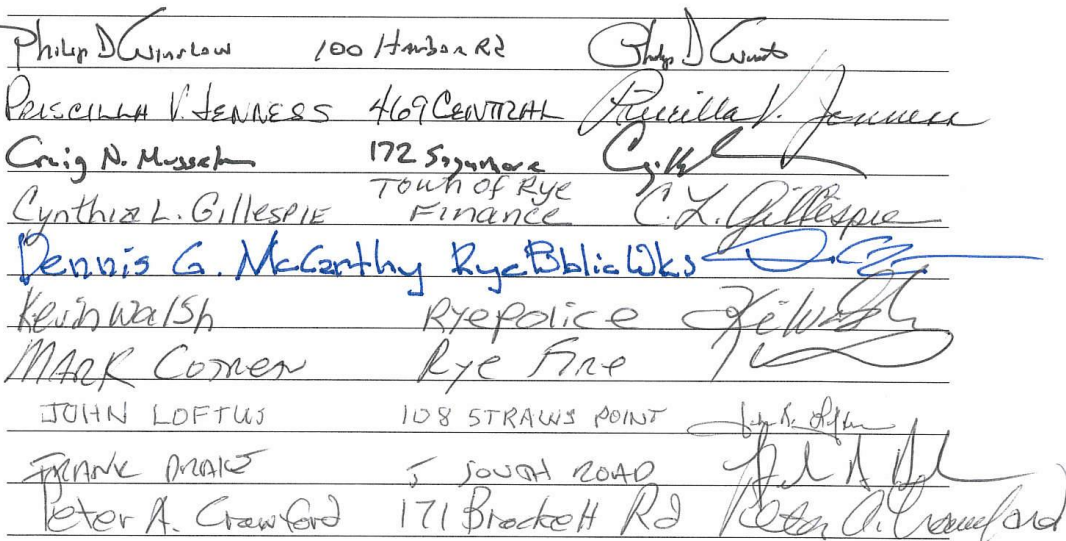 Philip D Winslow 100 Harbor Rd Philip D Winslow
PRISCILLA V. JENNESS 469 CENTRAL Priscilla V. Jenness
Craig N. Musselman 172 Sagamore
Town of Rye
Cynthia L. Gillespie Finance C. L. Gillespie
Dennis G. McCarthy Rye Public Wks
Kevin Walsh Rye Police K Walsh
MARK COTREN Rye Fire
JOHN LOFTUS 108 STRAWS POINT
FRANK DRAKE 5 SOUTH ROAD
Peter A. Crawford 171 Brackett Rd Peter A. Crawford